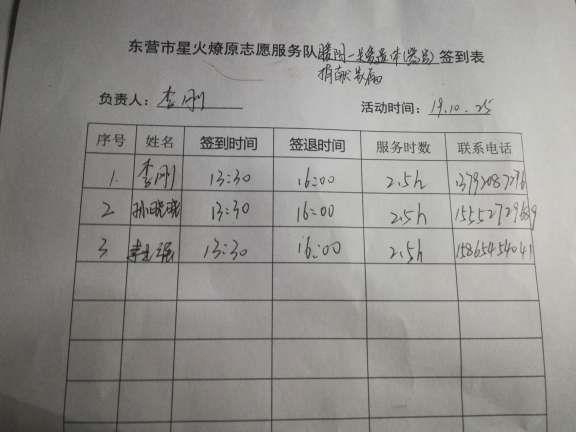 东营市星火燎原志愿服务队 签到表
捐献
负责人：李刚 活动时间：19.10.25
序号 姓名 签到时间 签退时间 服务时数 联系电话
1. 李刚 13:30 16:00 2.5h
2 孙晓晓 13:30 16:00 2.5h
3 13:30 16:00 2.5h 15865454041